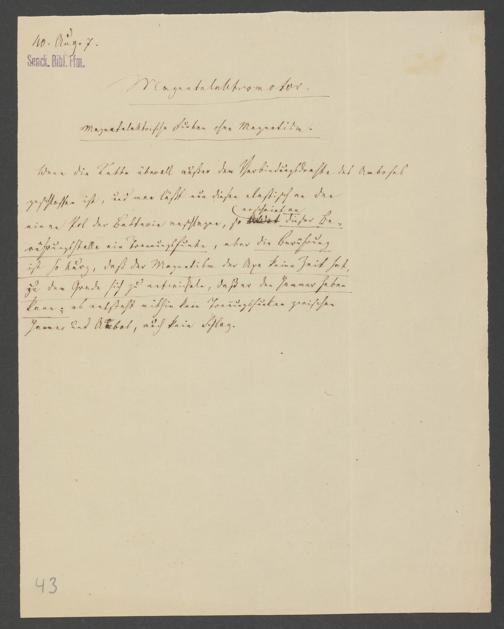 40. Aug. 7.
Senck. Bibl. Ffm.
Magnetelektromotor.
Magnetelektrische Funken ohne Magnetism.
Wenn die Kette überall außer dem Verbindungsdrahte des Amboses
geschlossen ist, und man läßt nun diesen elastisch an den
einen Pol der Batterie anschlagen, so erscheint an dieser Be-
rührungsstelle ein Trennungsfunke, aber die Berührung
ist so kurz, daß der Magnetism der Axe keine Zeit hat,
zu dem Grade sich zu entwickeln, daß er den Hammer heben
kann; es entsteht mithin kein Trennungsfunken zwischen
Hammer und Ambos, auch kein Schlag.
43